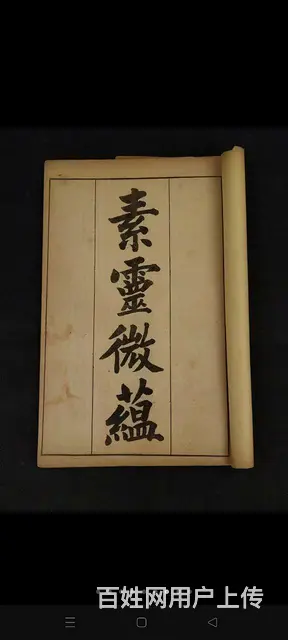 素靈微蘊
百姓网用户上传